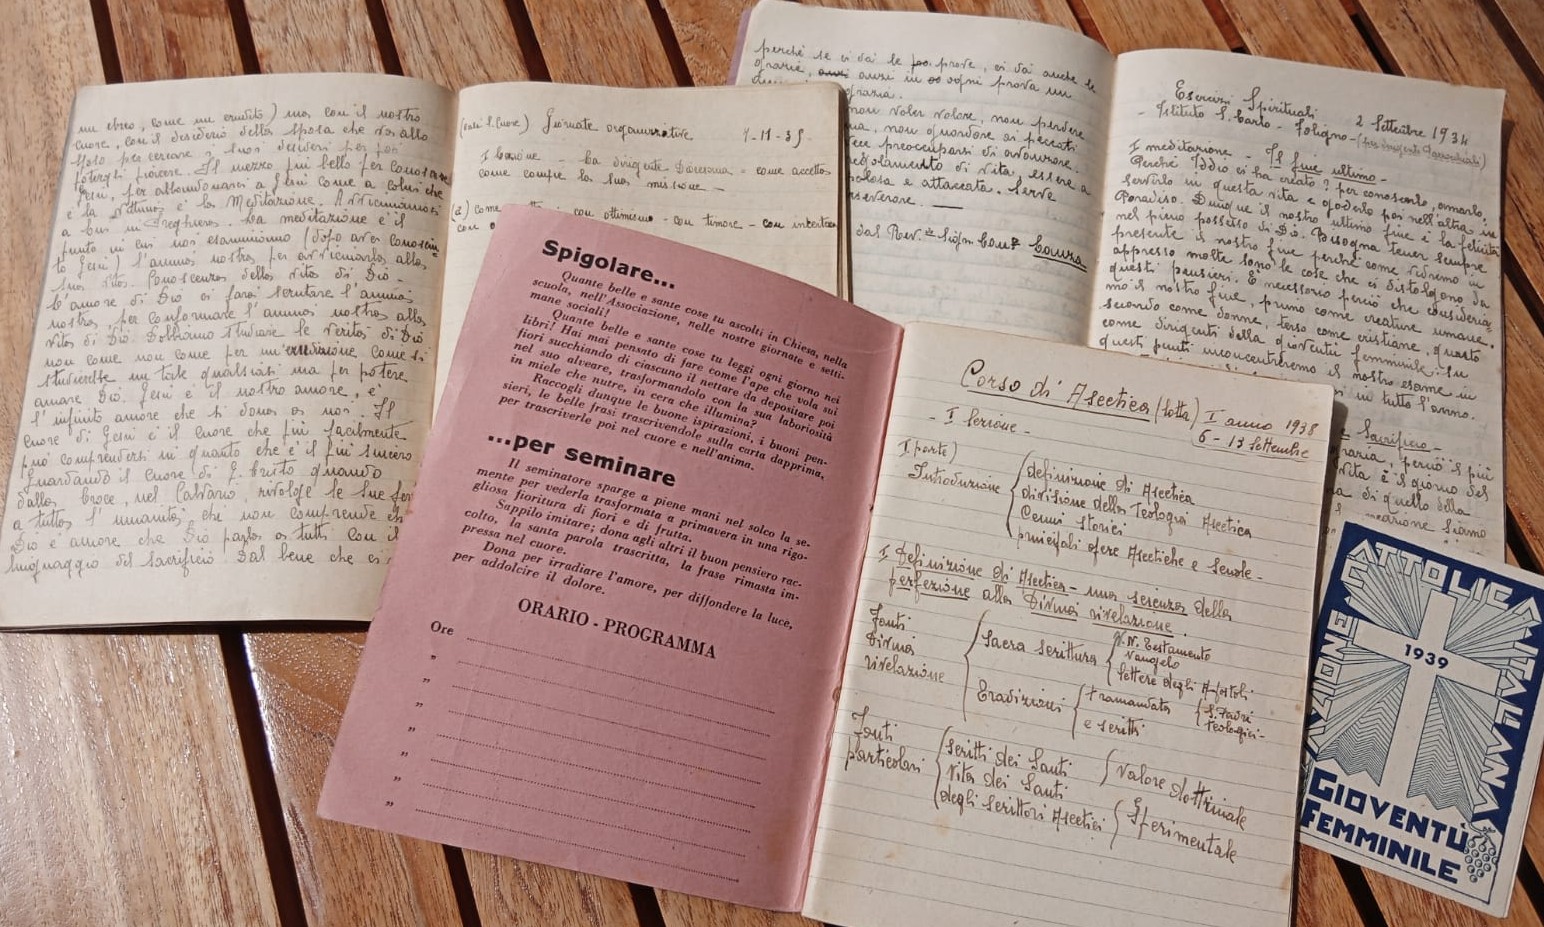 un ebreo, come un erudito) ma con il nostro
cuore, con il desiderio della sposa che va allo
sposo per cercare i suoi desideri per poi
potergli piacere. Il mezzo più bello per conoscere
Gesù, per abbandonarci a Gesù come a colui che
è la vittima è la Meditazione. Avviciniamoci
a Lui in preghiera. La meditazione è il
punto in cui noi esaminiamo (dopo aver conosciu
to Gesù) l'anima nostra per avvicinarla alla
sua vita. Conoscenza della vita di Dio -
L'amore di Dio ci farà scrutare l'anima
nostra, per conformare l'anima nostra alla
vita di Dio. Dobbiamo studiare le verità di Dio
non come non come per un'erudizione, come si
studierebbe un tale qualsiasi ma per potere
amare Dio. Gesù è il nostro amore, è
l'infinito amore che si dona a noi. Il
cuore di Gesù è il cuore che più facilmente
può comprendersi in quanto che è il più sincero
Guardando il cuore di G. Cristo quando
dalla Croce, nel Calvario, rivolge le sue
a tutta l'umanità che non comprende
Dio è amore che Dio parla a tutti con il
linguaggio del sacrificio Dal bene che ci
Giornate organizzative 7-11-35
I Lezione - La dirigente Diocesana - come accetta
come compie la sua missione -
(a) come con ottimismo - con timore - con incertezza
con
perchè se ci dà le prove, ci dà anche le
grazie, anzi in ogni prova un
grazia.
non voler volare, non perdere
non guardare ai peccati
preoccuparsi di
di vita, essere a
e attaccata. Serve
dal Rev. Sign. Can.
Esercizi Spirituali 2 Settembre 1934
- Istituto S. Carlo - Foligno - (per dirigenti Parrocchiali)
I meditazione - Il fine ultimo -
Perchè Iddio ci ha creato? per conoscerlo, amarlo,
servirlo in questa vita e goderlo poi nell'altra in
Paradiso. Dunque il nostro ultimo fine è la felicità
nel pieno possesso di Dio. Bisogna tener sempre
presente il nostro fine perchè come vedremo in
appresso molte sono le cose che ci distolgono da
questi pensieri. È necessario perciò che consideria
mo il nostro fine, primo come creature umane,
secondo come donne, terzo come cristiane, quarto
come dirigenti della gioventù femminile. Su
questi punti incentreremo il nostro esame in
in tutto l'anno.
Sacrificio -
perciò è più
vita è il giorno del
di quello della
siamo
Spigolare...
Quante belle e sante cose tu ascolti in Chiesa, nella
scuola, nell'Associazione, nelle nostre giornate e setti-
mane sociali!
Quante belle e sante cose tu leggi ogni giorno nei
libri! Hai mai pensato di fare come l'ape che vola sui
fiori succhiando di ciascuno il nettare da depositare poi
nel suo alveare, trasformandolo con la sua laboriosità
in miele che nutre, in cera che illumina?
Raccogli dunque le buone ispirazioni, i buoni pen-
sieri, le belle frasi trascrivendole sulla carta dapprima,
per trascriverle poi nel cuore e nell'anima.
...per seminare
Il seminatore sparge a piene mani nel solco la se-
mente per vederla trasformata a primavera in una rigo-
gliosa fioritura di fiori e di frutta.
Sappilo imitare; dona agli altri il buon pensiero rac-
colto, la santa parola trascritta, la frase rimasta im-
pressa nel cuore.
Dona per irradiare l'amore, per diffondere la luce,
per addolcire il dolore.
ORARIO - PROGRAMMA
Ore
"
"
"
"
"
"
"
Corso di Ascetica (Lotta) I anno 1938
6 - 13 Settembre
- I Lezione -
I parte)
Introduzione
definizione di Ascetica
divisione della Teologia Ascetica
Cenni storici
principali opere Ascetiche e Scuole -
I Definizione di Ascetica - una scienza della
perfezione alla Divina rivelazione.
Fonti
Divina
rivelazione
Sacra Scrittura
N. Testamento
Vangelo
lettere degli Apostoli
Tradizioni
tramandata
e scritti
S. Padri
teologici -
Fonti
particolari
scritti dei Santi
vita dei Santi
degli scrittori Ascetici
Valore dottrinale
Sperimentale
AZIONE CATTOLICA ITALIANA
1939
GIOVENTÙ
FEMMINILE